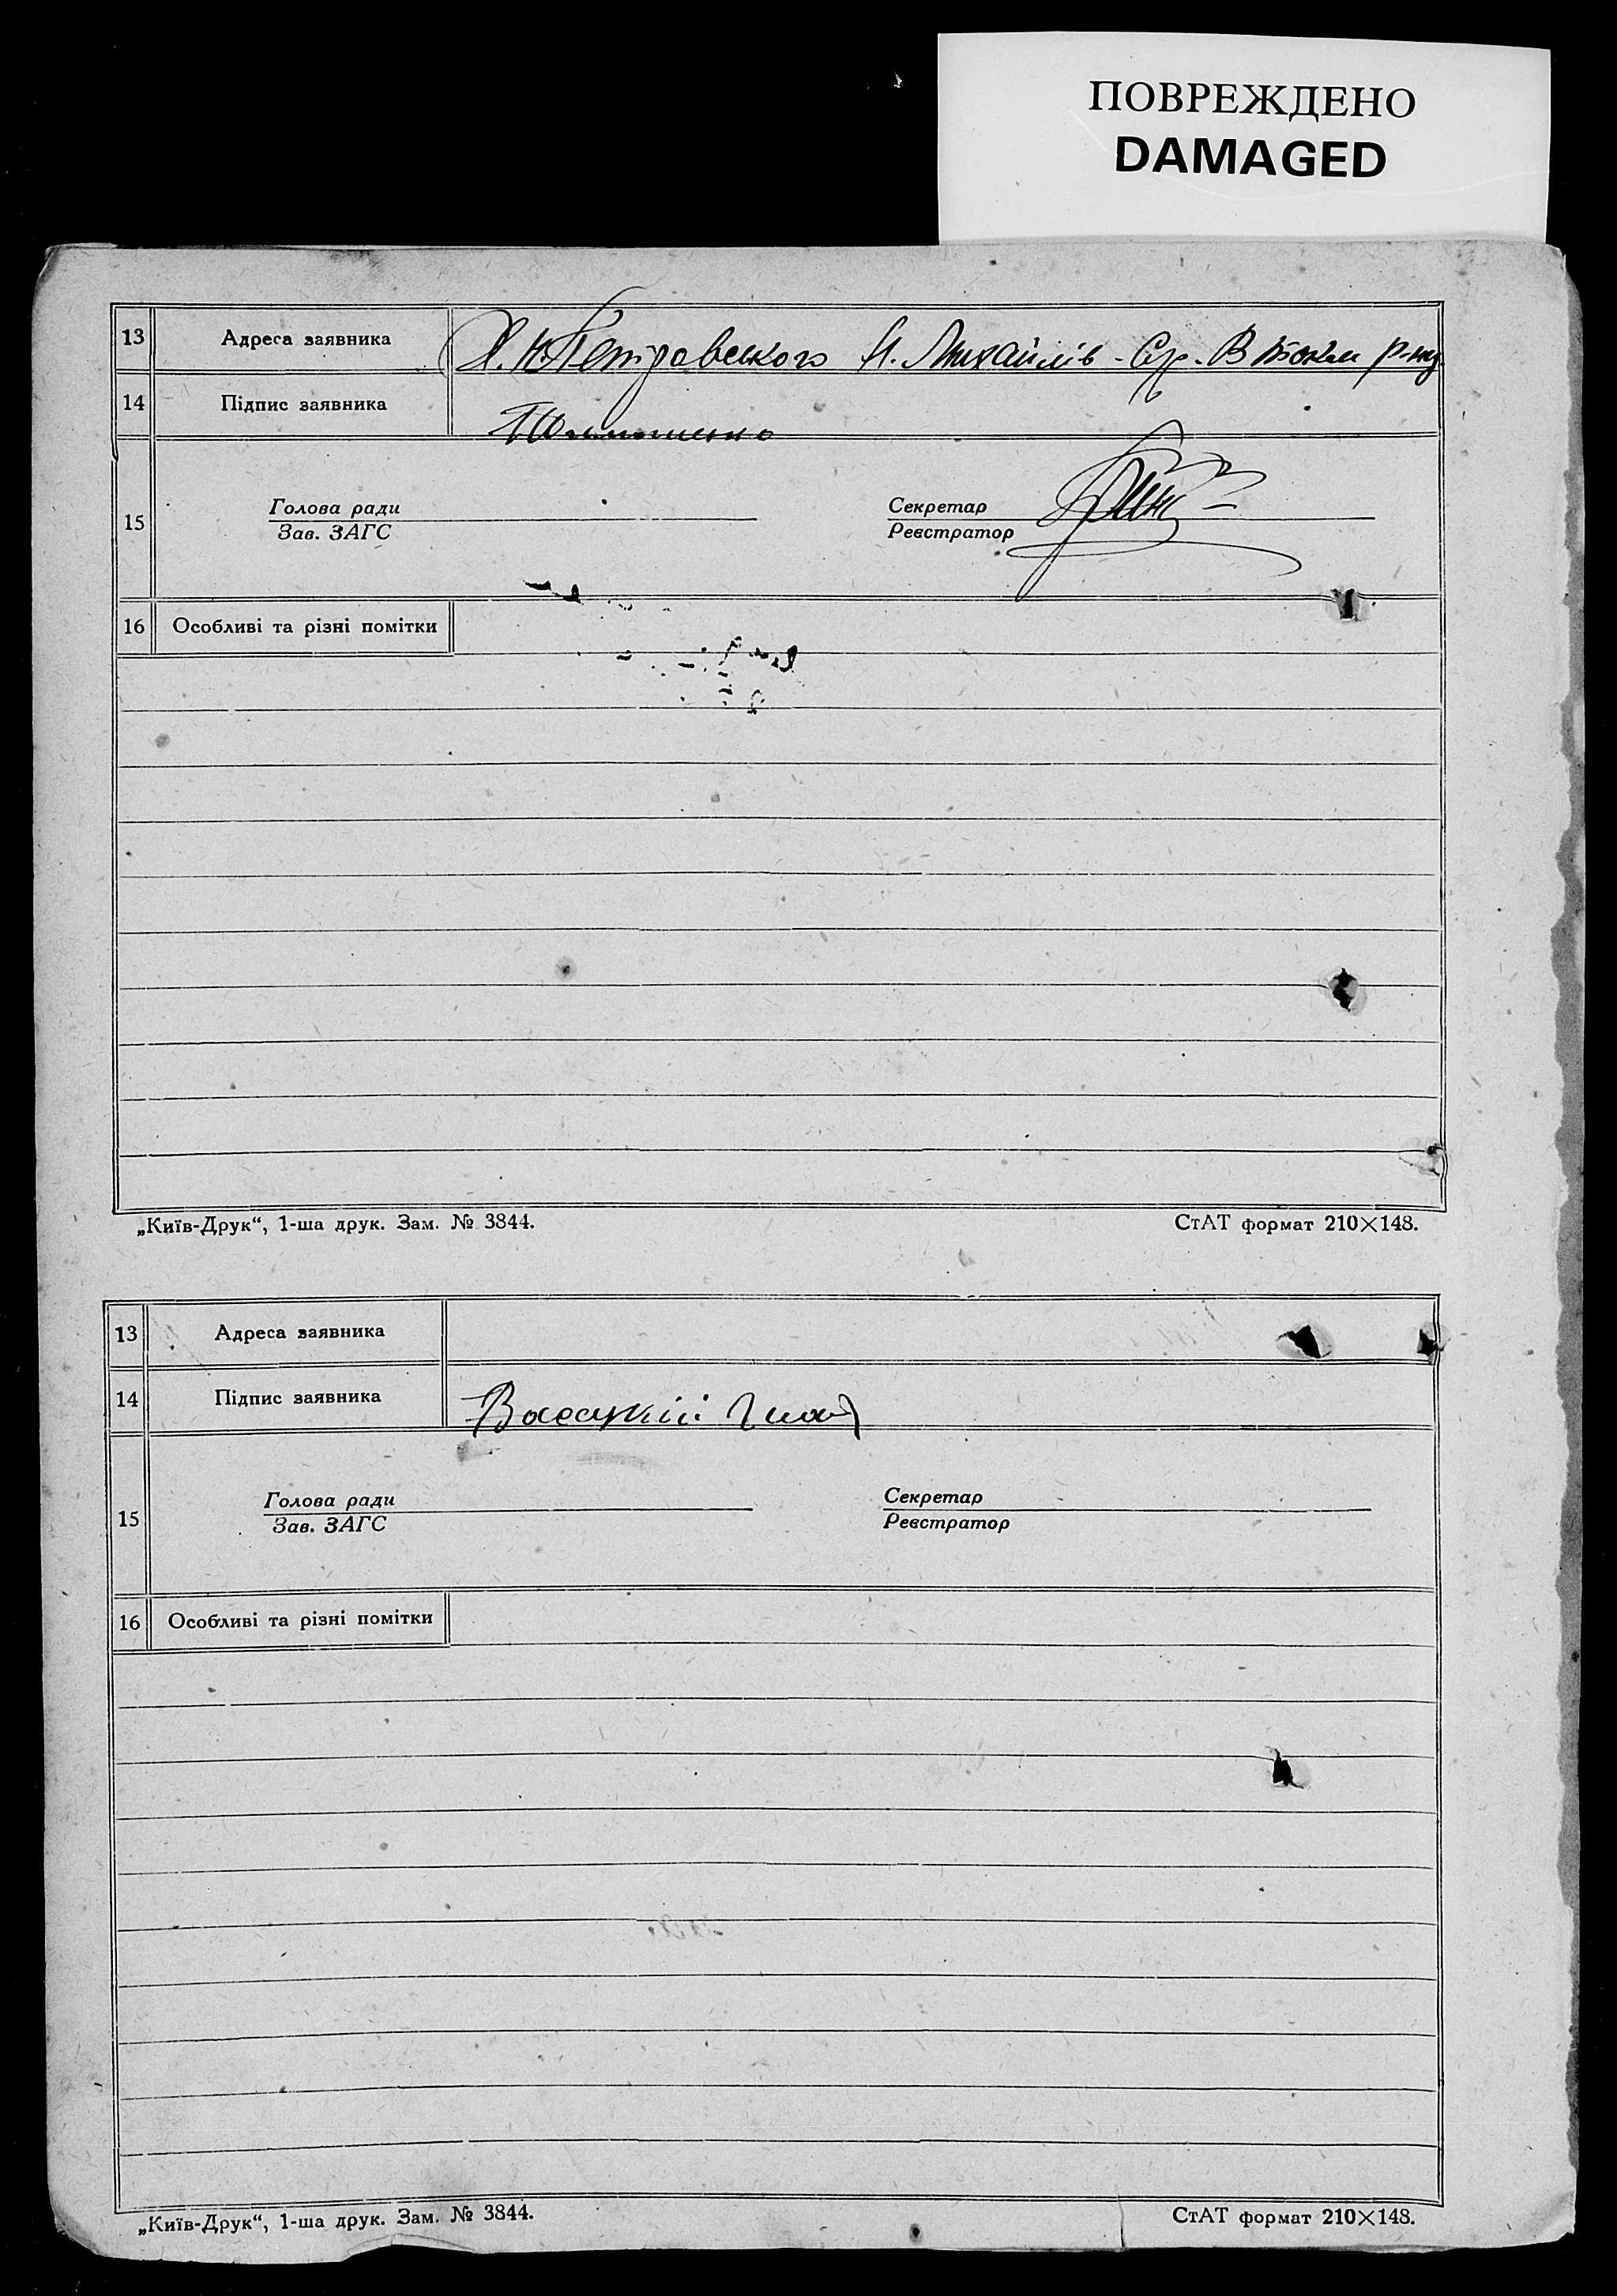 ПОВРЕЖДЕНО
DAMAGED
13 Адреса заявника Х. Н. Петровського Н. Михайлів - С/р. В Токм р-ну
14 Підпис заявника Тимошенко
15 Голова ради Секретар
Зав. ЗАГС Реєстратор
16 Особливі та різні помітки
„Київ-Друк“, 1-ша друк. Зам. № 3844. СтАТ формат 210×148.
13 Адреса заявника
14 Підпис заявника Висоцкій
15 Голова ради Секретар
Зав. ЗАГС Реєстратор
16 Особливі та різні помітки
„Київ-Друк“, 1-ша друк. Зам. № 3844. СтАТ формат 210×148.